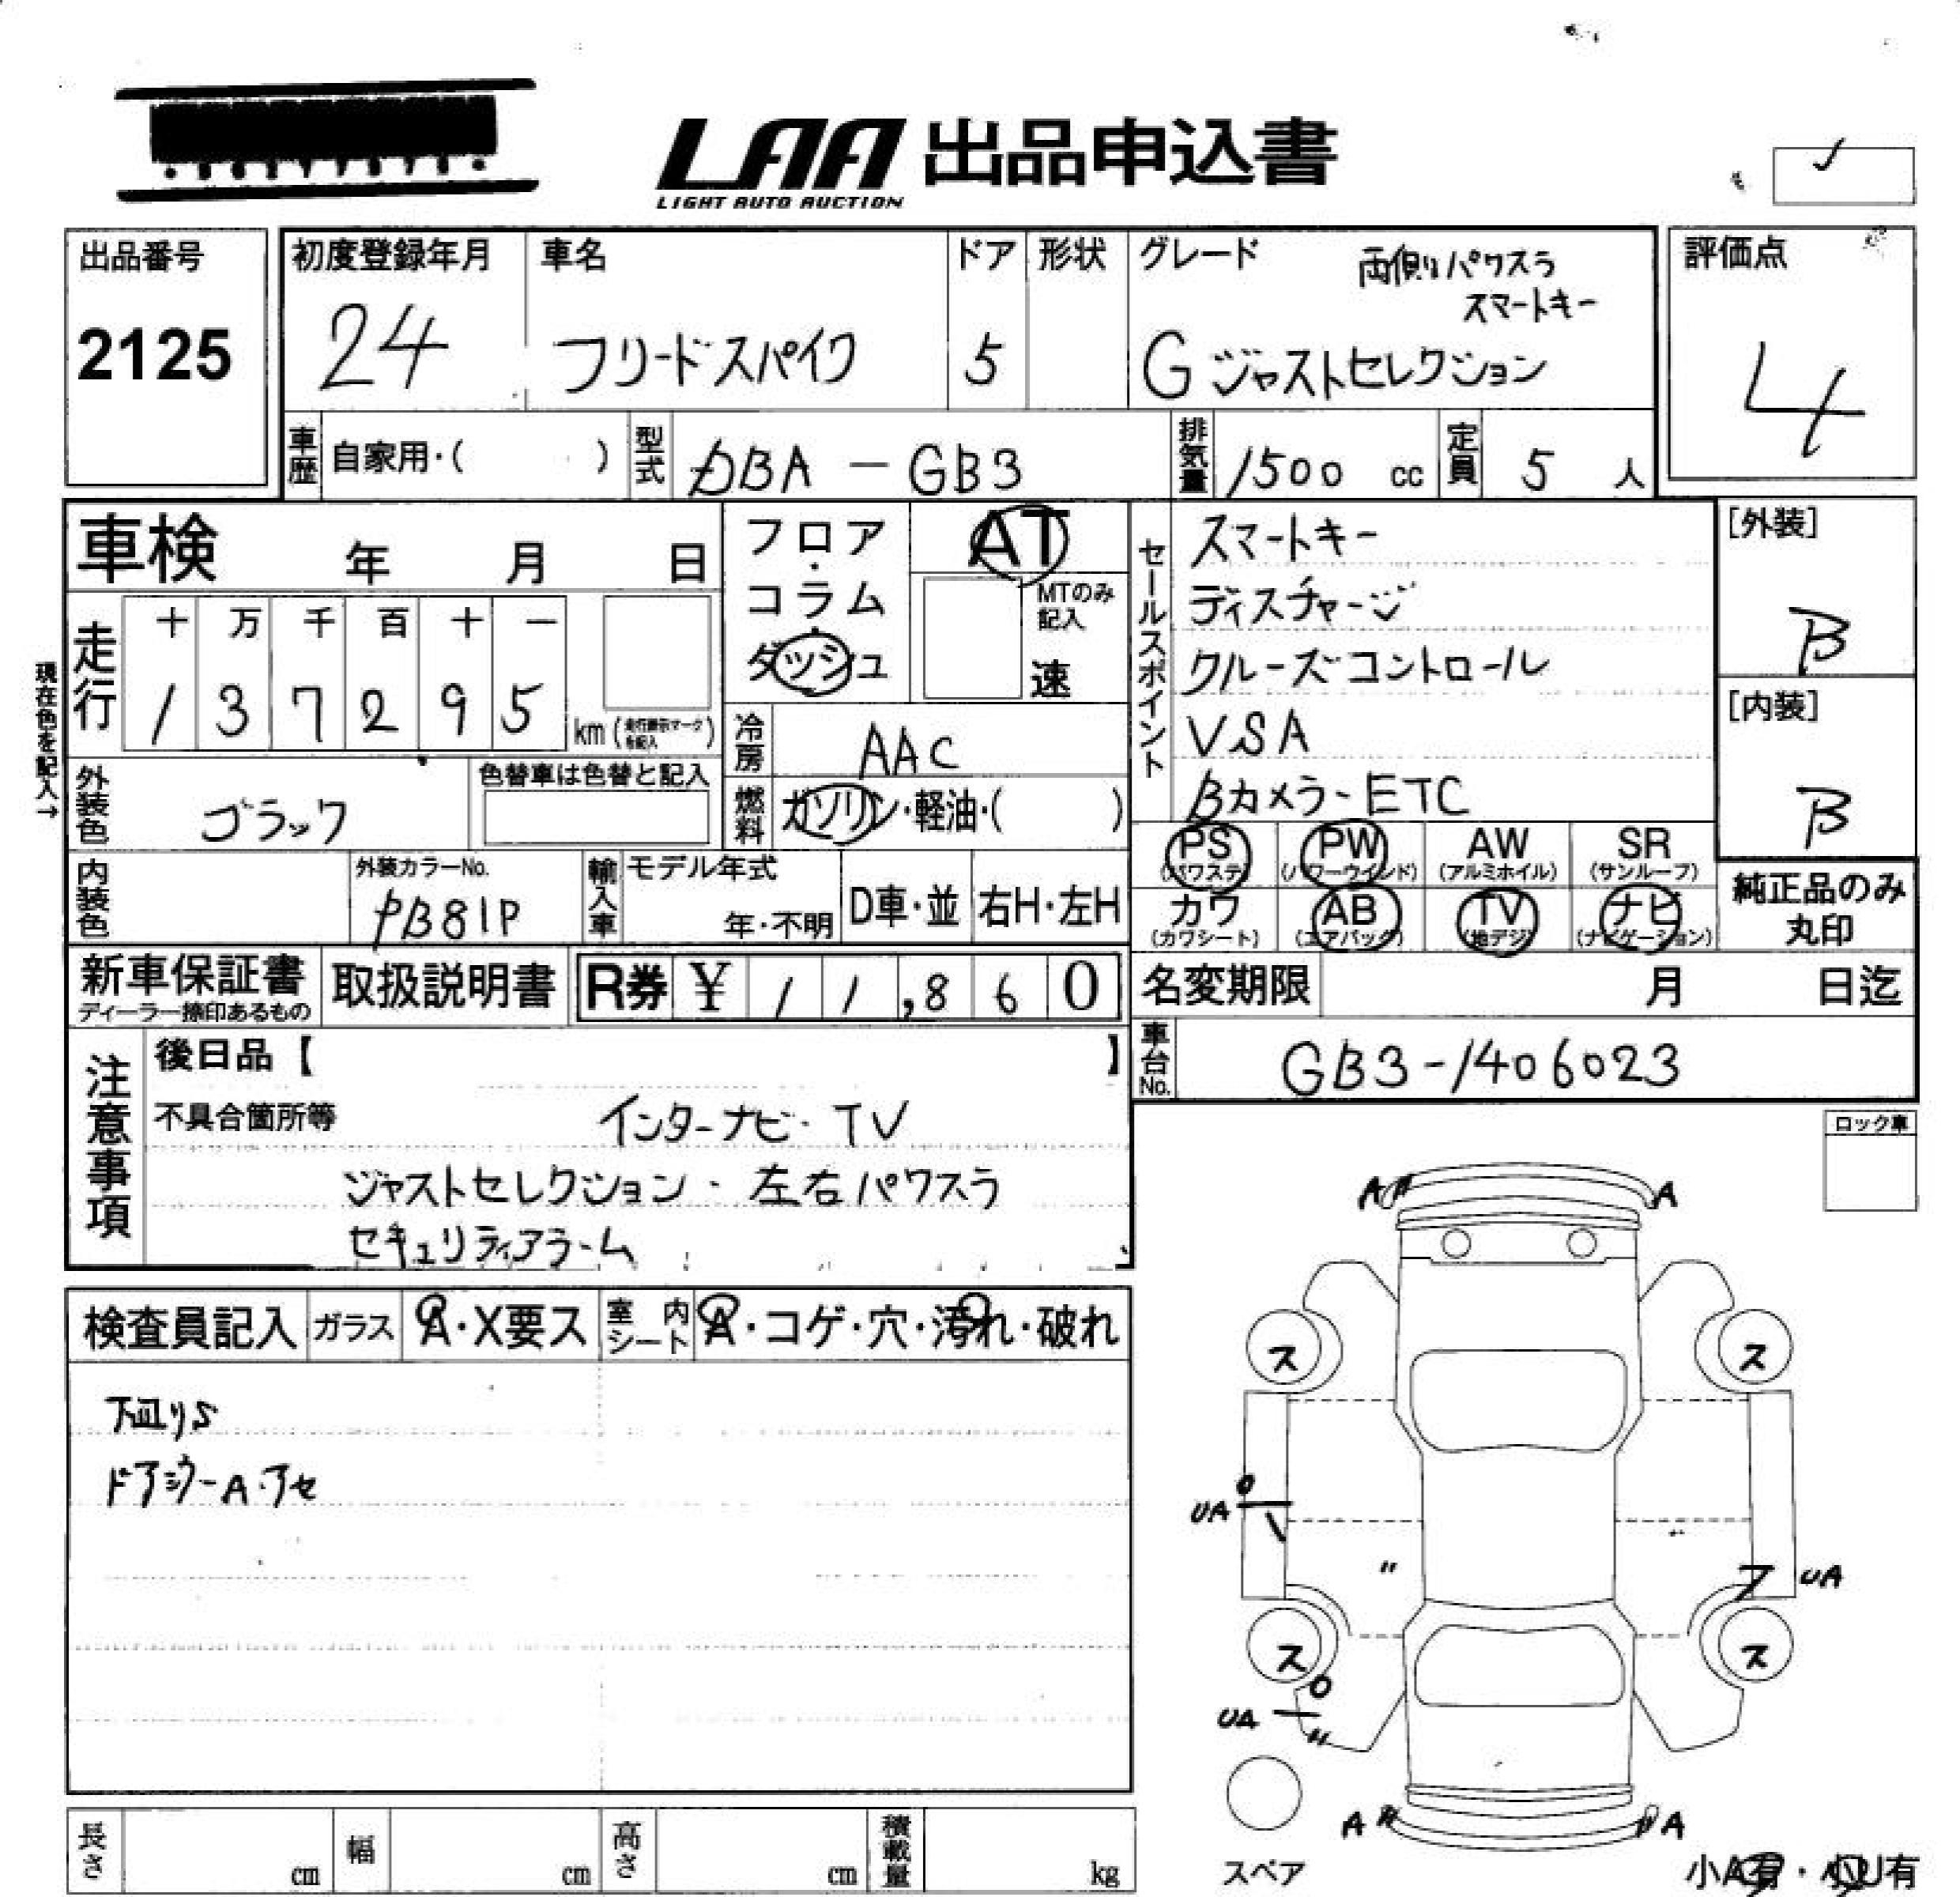 LAA 出品申込書
LIGHT AUTO AUCTION
出品番号
2125
初度登録年月
24
車名
フリードスパイク
ドア
5
形状
グレード
両側パワスラ
スマートキー
G ジャストセレクション
評価点
4
車歴
自家用・( )
型式
DBA - GB3
排気量
1500 cc
定員
5 人
車検 年 月 日
フロア・コラム・ダッシュ
AT
MTのみ記入
速
セールスポイント
スマートキー
ディスチャージ
クルーズコントロール
VSA
Bカメラ・ETC
[外装]
B
[内装]
B
現在色を記入→
走行
十 万 千 百 十 一
1 3 7 2 9 5 km
冷房
AAC
外装色
ブラック
色替車は色替と記入
燃料
ガソリン・軽油・( )
PS PW AW SR
(パワステ) (パワーウインド) (アルミホイル) (サンルーフ)
カワ AB TV ナビ
(カワシート) (エアバック) (地デジ) (ナビゲーション)
純正品のみ
丸印
内装色
外装カラーNo.
PB81P
輸入車
モデル年式
年・不明
D車・並
右H・左H
新車保証書
ディーラー捺印あるもの
取扱説明書
R券 ¥ 11,860
名変期限 月 日迄
車台No.
GB3-1406023
注意事項
後日品【 】
不具合箇所等
インターナビ・TV
ジャストセレクション・左右パワスラ
セキュリティアラーム
ロック車
検査員記入
ガラス
A・X要ス
室内シート
A・コゲ・穴・汚れ・破れ
下廻りS
A A
ス ス
UA
UA
ス ス
UA
A A
スペア
小A有・小U有
長さ cm
幅 cm
高さ cm
積載量 kg